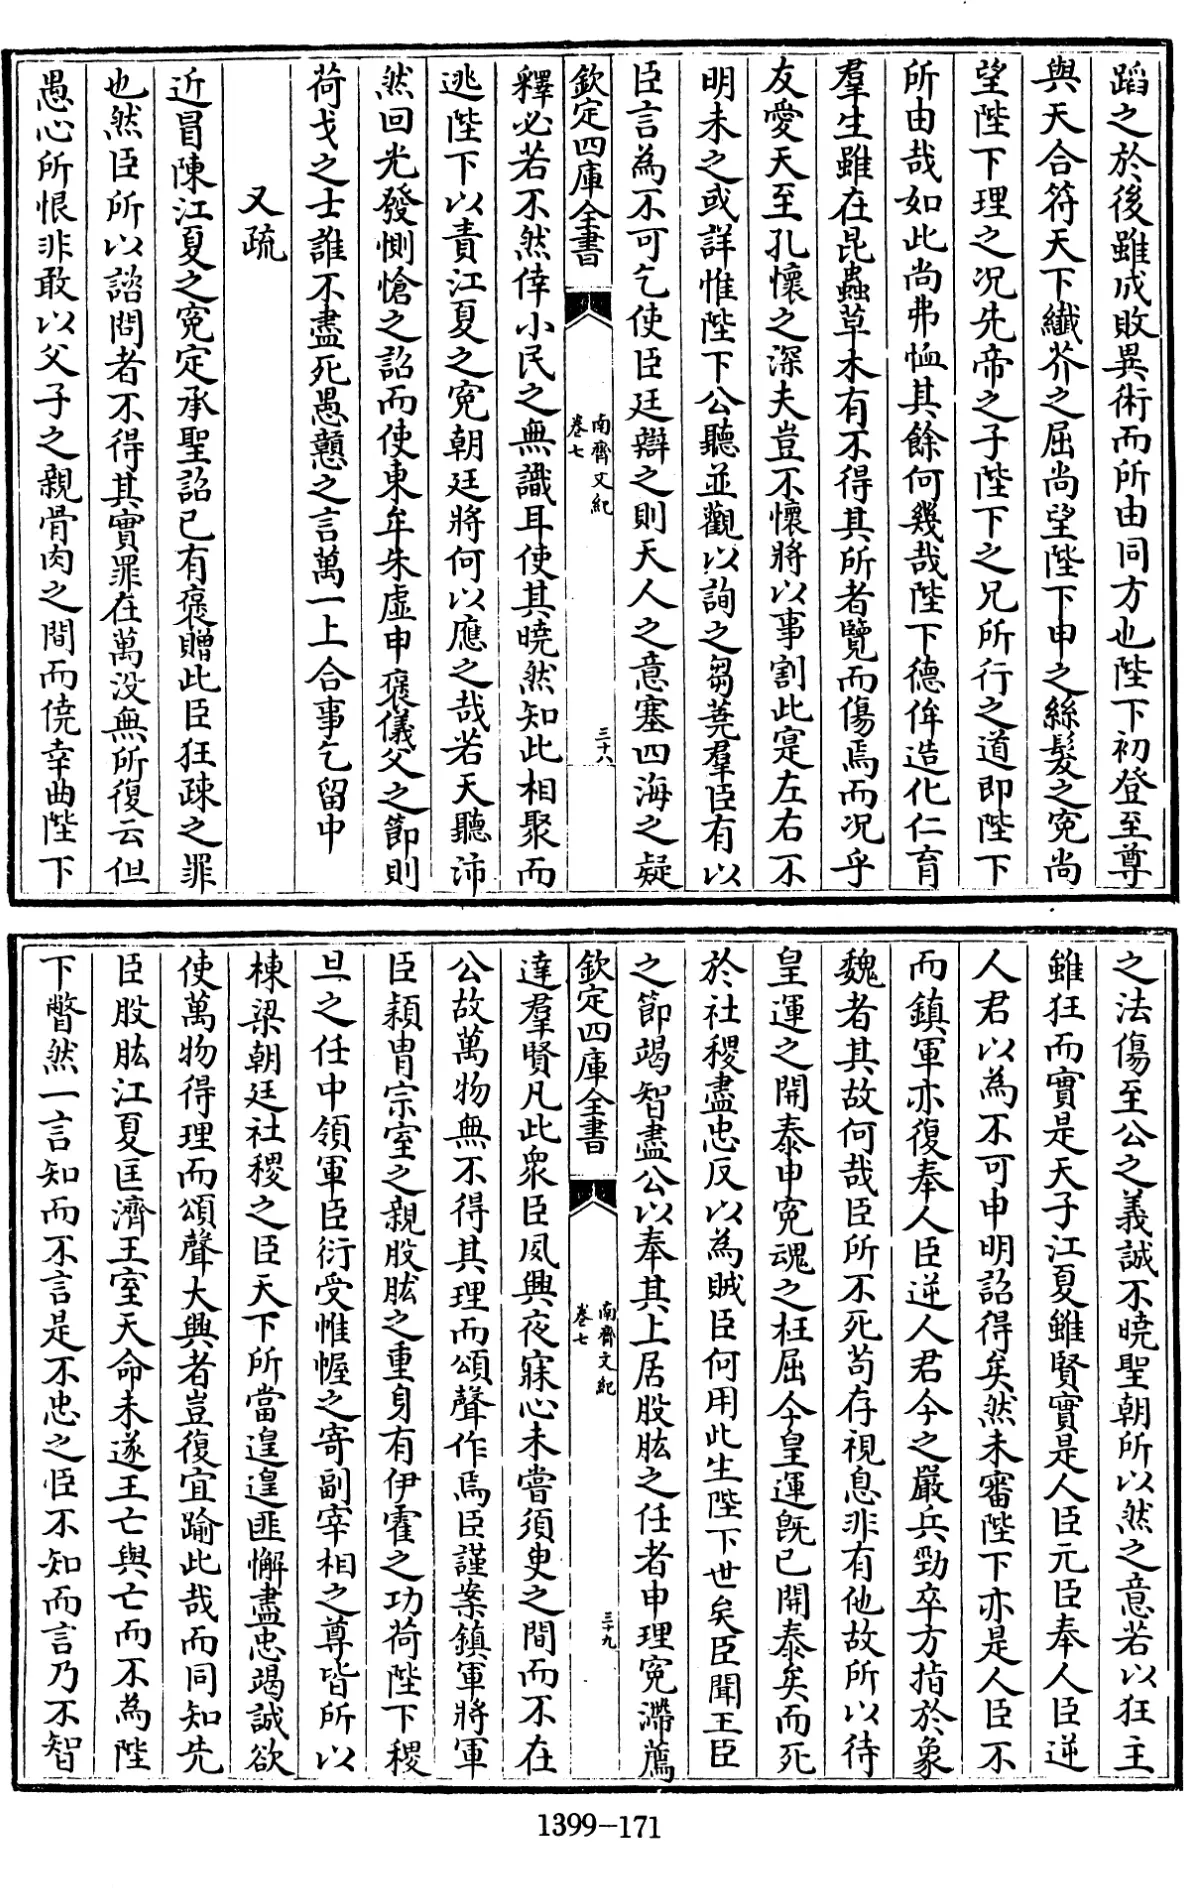 蹈之於後雖成敗異術而所由同方也陛下初登至尊
與天合符天下纎芥之屈尚望陛下申之絲髪之寃尚
望陛下理之况先帝之子陛下之兄所行之道即陛下
所由哉如此尚弗恤其餘何幾哉陛下德侔造化仁育
羣生雖在昆蟲草木有不得其所者覽而傷焉而况乎
友愛天至孔懷之深夫豈不懷將以事割此寔左右不
明未之或詳惟陛下公聽並觀以詢之芻蕘羣臣有以
臣言為不可乞使臣廷辯之則天人之意塞四海之疑
欽定四庫全書
南齊文紀
卷七
三十八
釋必若不然倖小民之無識耳使其曉然知此相聚而
逃陛下以責江夏之寃朝廷將何以應之哉若天聽沛
然回光發惻愴之詔而使東牟朱虛申褒儀父之節則
荷戈之士誰不盡死愚戇之言萬一上合事乞留中
又疏
近冒陳江夏之寃定承聖詔已有褒贈此臣狂疎之罪
也然臣所以諮問者不得其實罪在萬没無所復云但
愚心所恨非敢以父子之親骨肉之間而僥幸曲陛下
之法傷至公之義誠不曉聖朝所以然之意若以狂主
雖狂而實是天子江夏雖賢實是人臣元臣奉人臣逆
人君以為不可申明詔得矣然未審陛下亦是人臣不
而鎮軍亦復奉人臣逆人君今之嚴兵勁卒方指於象
魏者其故何哉臣所不死苟存視息非有他故所以待
皇運之開泰申寃魂之枉屈今皇運既已開泰矣而死
於社稷盡忠反以為賊臣何用此生陛下世矣臣聞王臣
之節竭智盡公以奉其上居股肱之任者申理寃滯薦
欽定四庫全書
南齊文紀
卷七
三十九
達羣賢凡此衆臣夙興夜寐心未嘗須臾之間而不在
公故萬物無不得其理而頌聲作焉臣謹案鎮軍將軍
臣穎胄宗室之親股肱之重身有伊霍之功荷陛下稷
旦之任中領軍臣衍受帷幄之寄副宰相之尊皆所以
棟梁朝廷社稷之臣天下所當遑遑匪懈盡忠竭誠欲
使萬物得理而頌聲大興者豈復宜踰此哉而同知先
臣股肱江夏匡濟王室天命未遂王亡與亡而不為陛
下瞥然一言知而不言是不忠之臣不知而言乃不智
1399-171